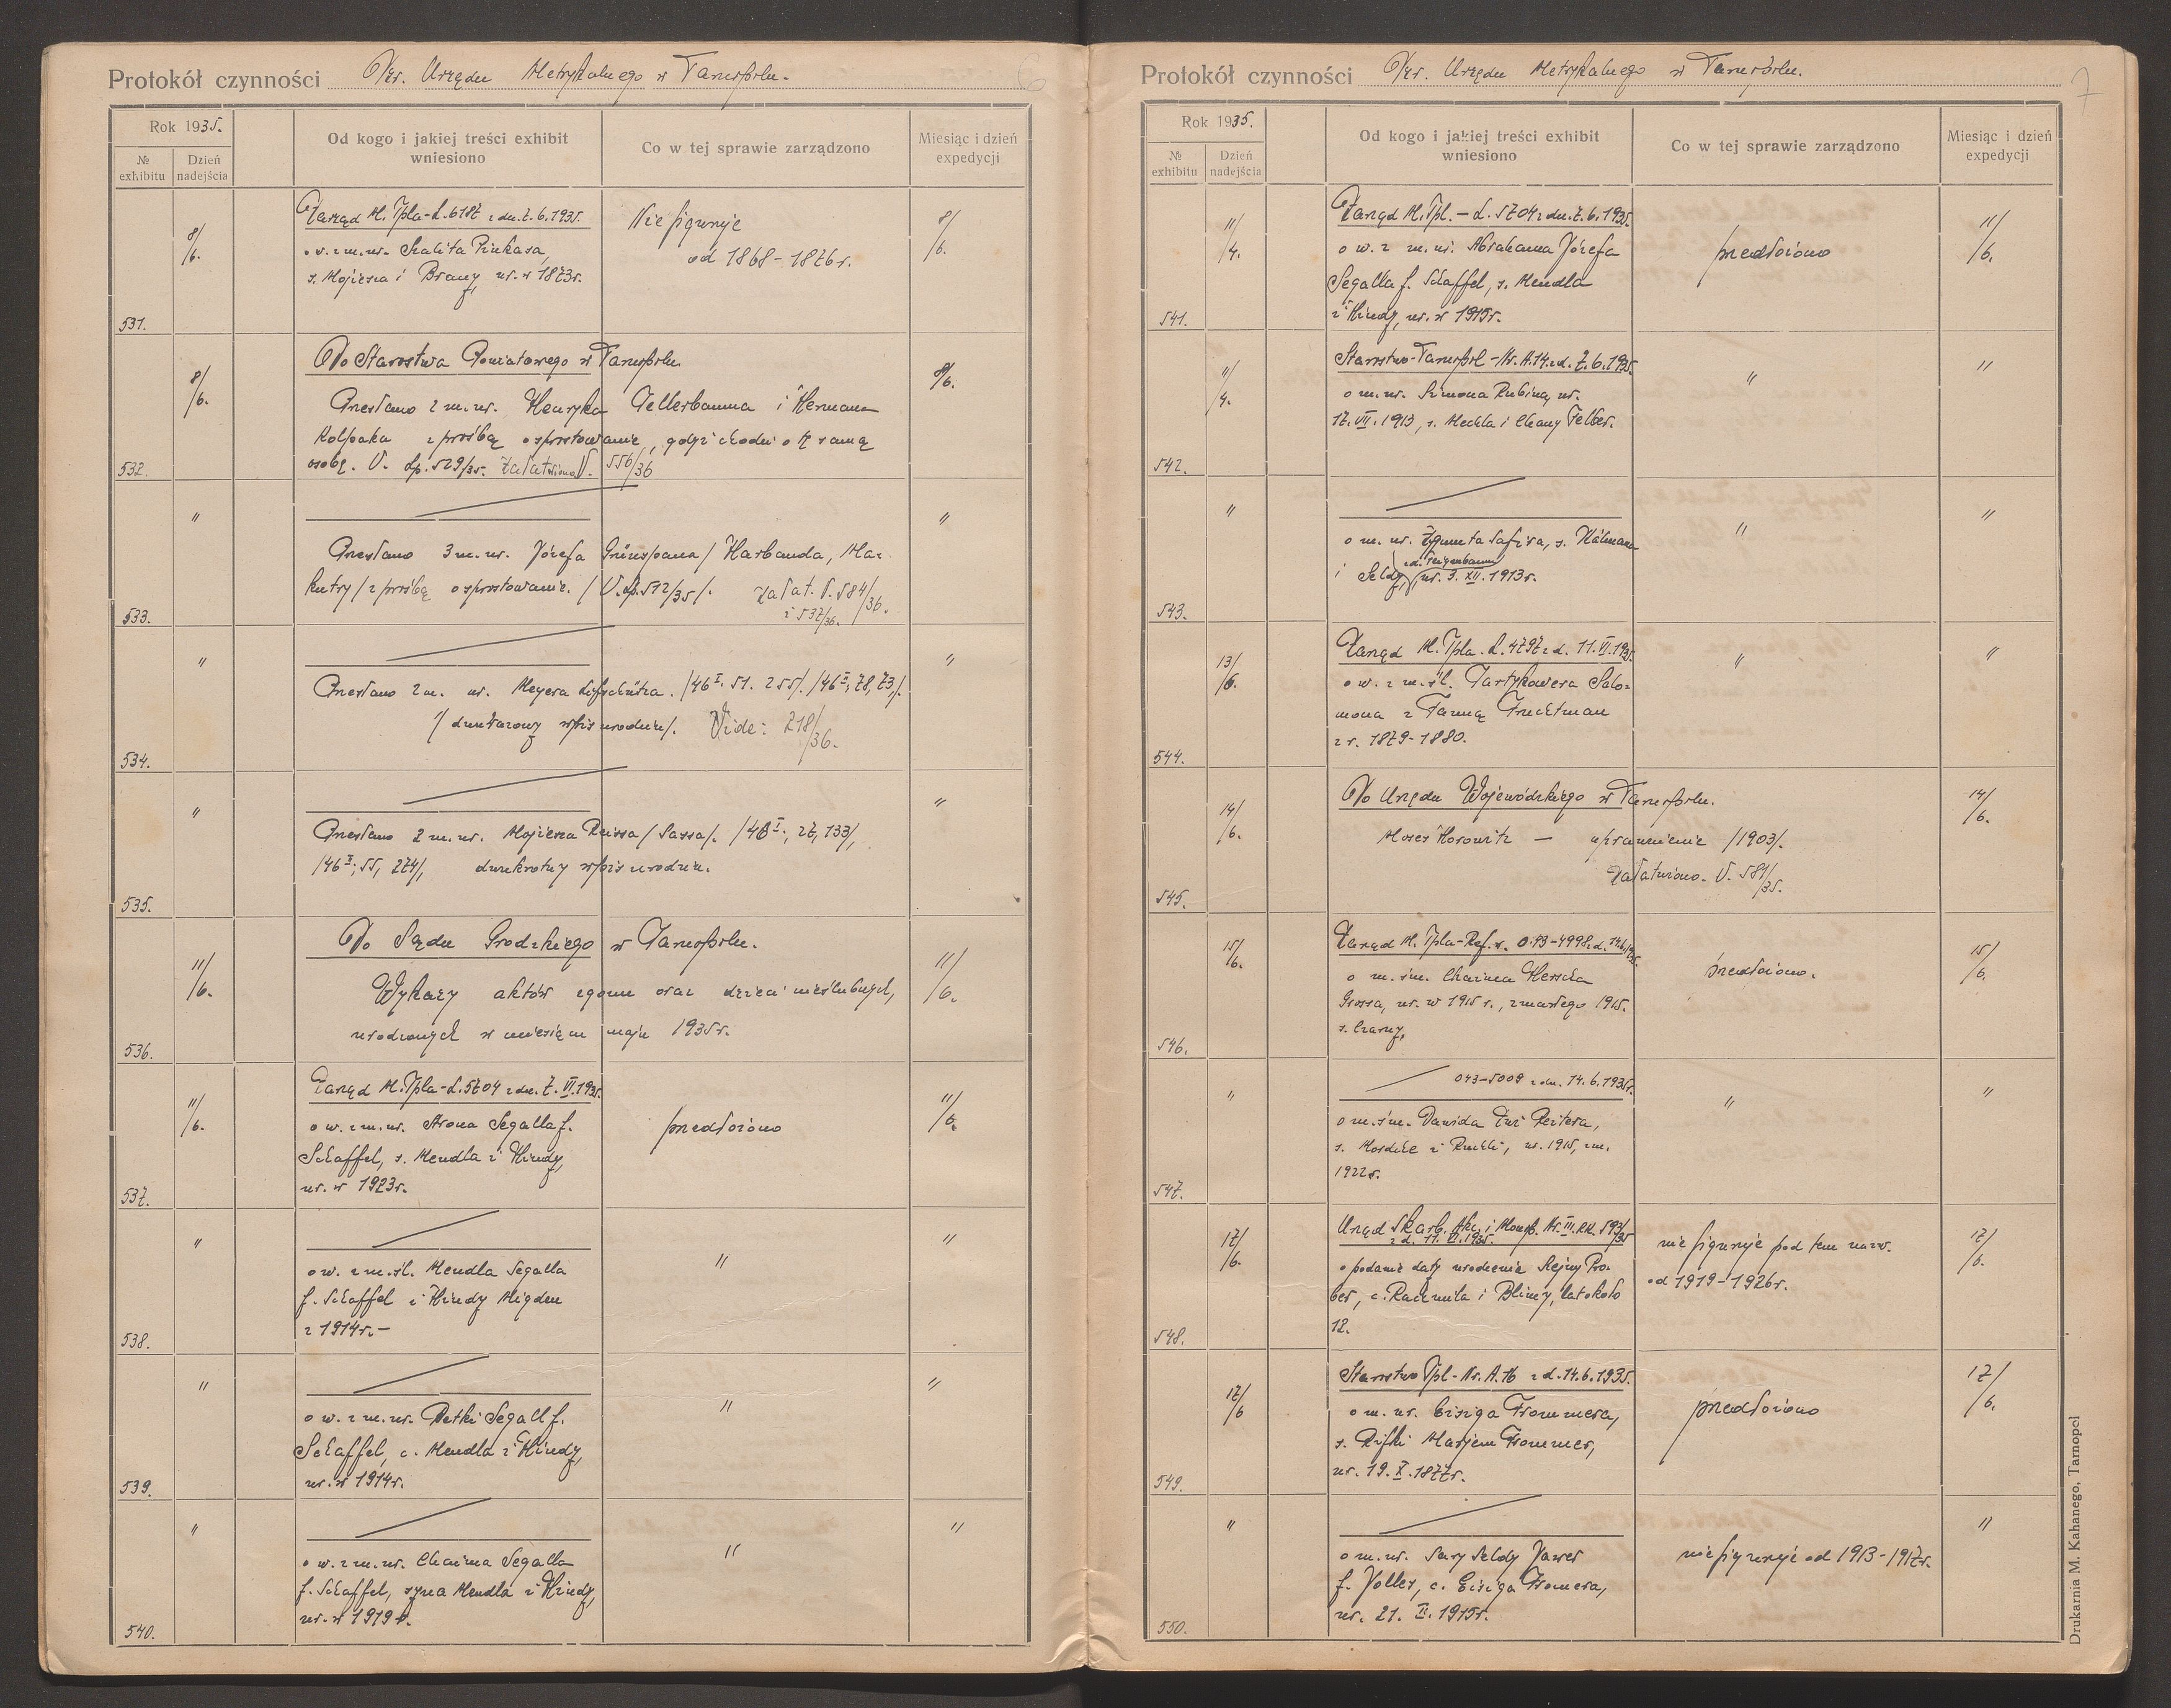 Protokół czynności Okr. Urzędu Metrykalnego w Tarnopolu.
6
Rok 1935.
№ exhibitu
Dzień nadejścia
Od kogo i jakiej treści exhibit wniesiono
Co w tej sprawie zarządzono
Miesiąc i dzień expedycji
531.
8/6.
Zarząd M. Tpla - L. 6187 z dn. 7.6.1935.
o w. z m. ur. Szalita Pinkasa,
s. Mojżesza i Brany, ur. w 1873r.
Nie figuruje
od 1868-1876r.
8/6.
532.
8/6.
Do Starostwa Powiatowego w Tarnopolu.
Przesłano 2 m. ur. Henryka Tellerbauma i Hermana
Kolpaka z prośbą o sprostowanie, gdyż chodzi o tę samą
osobę. V. Lp. 529/35. Załatwiono V. 556/36
8/6.
533.
"
Przesłano 3 m. ur. Józefa Grünspana / Harbanda, Ma-
kutry / z prośbą o sprostowanie. / V. Lp. 512/35 /. załat. V. 584/36.
i 537/36.
"
534.
"
Przesłano 2 m. ur. Meyera Lifschütza. /46 I. 51. 255/. /46 I, 78, 73/.
/ dwurazowy wpis urodzin /. Vide: 718/36.
"
535.
"
Przesłano 2 m. ur. Mojżesza Reissa / Sassa /. /46 I; 27, 133/,
/46 I; 55, 274/, dwukrotny wpis urodzin.
"
536.
11/6.
Do Sądu Grodzkiego w Tarnopolu.
Wykazy aktów zgonu oraz dzieci nieślubnych,
urodzonych w miesiącu maju 1935r.
11/6.
537.
11/6.
Zarząd M. Tpla - L. 5704 z dn. 7. VI. 1935.
o w. z m. ur. Arona Segalla f.
Schaffel, s. Mendla i Hindy,
ur. w 1923r.
przedłożono
11/6.
538.
"
o w. z m. śl. Mendla Segalla
f. Schaffel i Hindy Migden
z 1914r. -
"
"
539.
"
o w. z m. ur. Retki Segall f.
Schaffel, c. Mendla i Hindy,
ur. w 1914r.
"
"
540.
"
o w. z m. ur. Chaima Segalla
f. Schaffel, syna Mendla i Hindy,
ur. w 1919r.
"
"
Protokół czynności Okr. Urzędu Metrykalnego w Tarnopolu.
7
Rok 1935.
№ exhibitu
Dzień nadejścia
Od kogo i jakiej treści exhibit wniesiono
Co w tej sprawie zarządzono
Miesiąc i dzień expedycji
541.
11/4.
Zarząd M. Tpl. - L. 5704 z dn. 7.6.1935.
o w. z m. ur. Abrahama Józefa
Segalla f. Schaffel, s. Mendla
i Hindy, ur. w 1915r.
przedłożono
11/6.
542.
11/4.
Starostwo - Tarnopol - Nr. A.14. z d. 7.6.1935.
o m. ur. Szimona Rubina, ur.
17. VII. 1913, s. Mechla i Chany Felber.
"
"
543.
"
o m. ur. Zygmunta Safira, s. Kalmana
i Seldy, z d. Feigenbaum
ur. 3. XII. 1913r.
"
"
544.
13/6.
Zarząd M. Tpla. L. 4797 z d. 11. VI. 1935.
o w. z m. śl. Tartykowera Salo-
mona z Fanną Fruchtman
z r. 1879-1880.
"
"
545.
14/6.
Do Urzędu Wojewódzkiego w Tarnopolu.
Moses Horowitz — uprawnienie /1903/.
Załatwiono. V. 581/35.
14/6.
546.
15/6.
Zarząd M. Tpla - Ref. w. 043-4998 z d. 14.6.1935.
o m. śm. Chaima Herscha
Grossa, ur. w 1915 r., zmarłego 1915.
s. Czarny,
przedłożono.
15/6.
547.
"
043-5009 z dn. 14.6.1935r.
o m. śm. Dawida Zwi Reitera,
s. Mordche i Ruchli, ur. 1915, zm.
1922r.
"
"
548.
17/6.
Urząd Skarb. Akc. i Monop. Nr. III. RK. 593/35
z d. 11. VI. 1935.
o podanie daty urodzenia Rejzy Pro-
ber, c. Rachmila i Blimy, lat około
12.
nie figuruje pod tem nazw.
od 1919-1926r.
17/6.
549.
17/6
Starostwo Tpl - Nr. A.16 z d. 14.6.1935.
o m. ur. Eisiga Frommera,
s. Rifki Marjem Frommer,
ur. 19. X. 1877r.
przedłożono
17/6.
550.
"
o m. ur. Sary Seldy Jawer
f. Joller, c. Eisiga Fromera,
ur. 21. II. 1915r.
nie figuruje od 1913-1917r.
"
Drukarnia M. Kahanego, Tarnopol